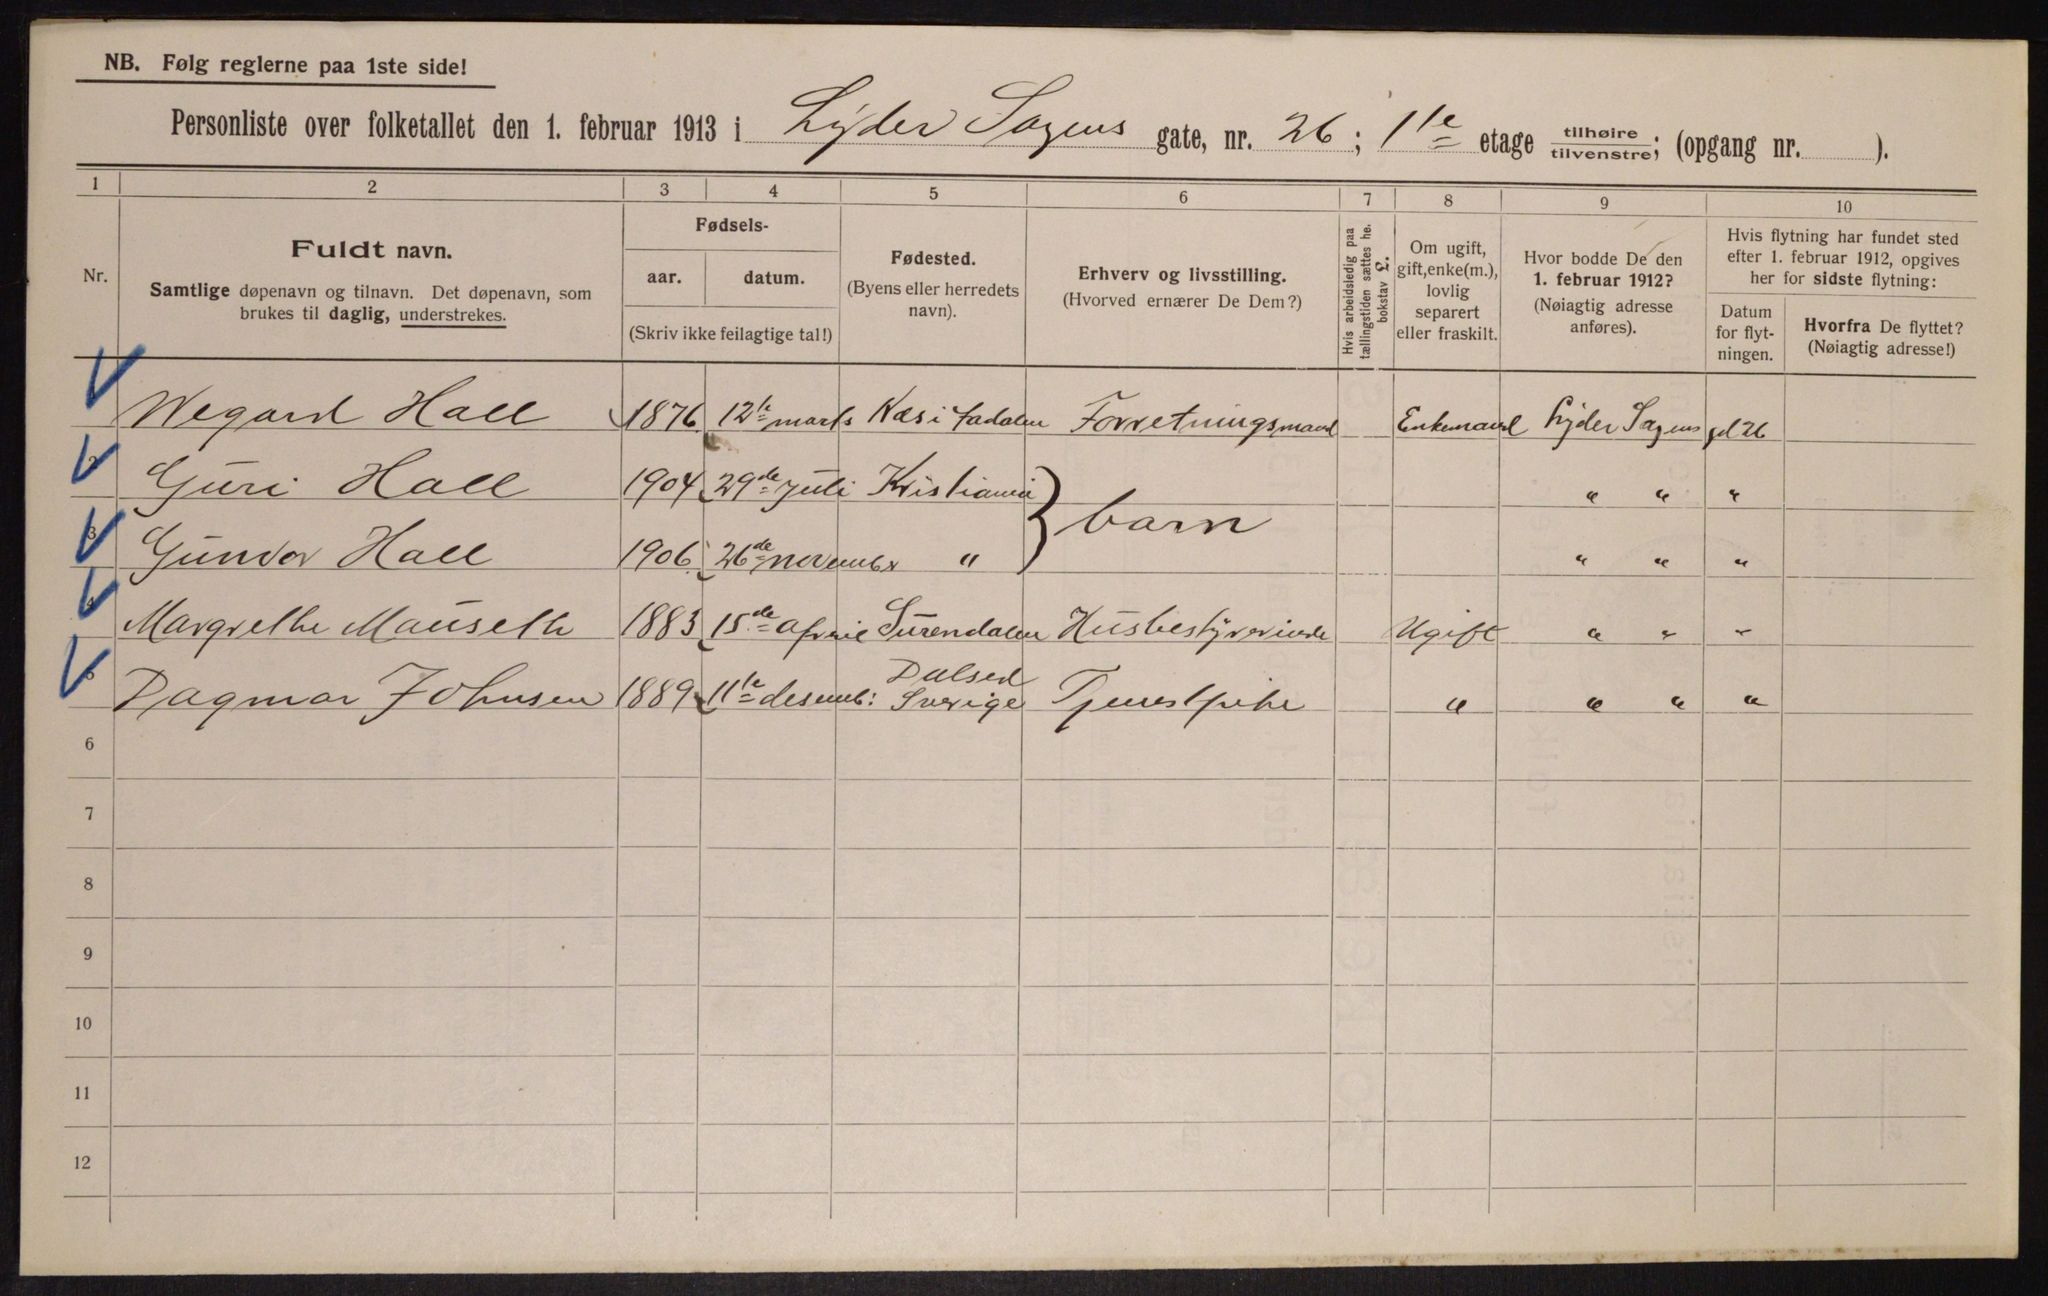 NB. Følg reglerne paa 1ste side!
Personliste over folketallet den 1. februar 1913 i Lyder Sagens gate, nr. 26; 1te etage tilhøire/tilvenstre; (opgang nr. ).
1 2 3 4 5 6 7 8 9 10
Nr.
Fuldt navn.
Samtlige døpenavn og tilnavn. Det døpenavn, som
brukes til daglig, understrekes.
Fødsels-
aar. datum.
(Skriv ikke feilagtige tal!)
Fødested.
(Byens eller herredets
navn).
Erhverv og livsstilling.
(Hvorved ernærer De Dem?)
Hvis arbeidsledig paa
tællingstiden sættes her
bokstav L.
Om ugift,
gift, enke(m.),
lovlig
separert
eller fraskilt.
Hvor bodde De den
1. februar 1912?
(Nøiagtig adresse
anføres).
Hvis flytning har fundet sted
efter 1. februar 1912, opgives
her for sidste flytning:
Datum
for flyt-
ningen.
Hvorfra De flyttet?
(Nøiagtig adresse!)
Wegard Hall 1876 12te marts Næs i Aadalen Forretningsmand Enkemand Lyder Sagens gd 26
2 Guri Hall 1904 29de juli Kristiania } barn " " "
3 Gunvor Hall 1906 26de november " " " "
4 Margrethe Mauseth 1883 15de april Surendalen Husbestyrerinde Ugift " " "
5 Dagmar Johnsen 1889 11te desemb: Dalsed Sverige Tjenestpike " " " "
6
7
8
9
10
11
12